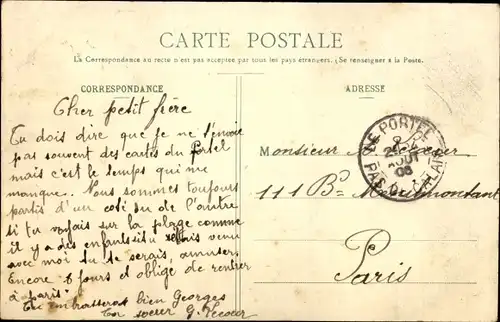 CARTE POSTALE
La Correspondance au recto n'est pas acceptée par tous les pays étrangers. (Se renseigner à la Poste.
CORRESPONDANCE
ADRESSE
Cher petit frère
Tu dois dire que je ne t'envoie
pas souvent des cartes du Portel
mais c'est le temps qui me
manque. Nous sommes toujours
partis d'un coté ou de l'autre
si tu voyais sur la plage comme
il y a des enfants si tu venu
avec moi tu te serais amuser
Encore jours et oblige de rentrer
à Paris.
Tu embrasseras bien Georges
Ta soeur G.
LE PORTEL
AOUT
08
PAS-DE-CALAIS
Monsieur
111 Bd Menilmontant
Paris